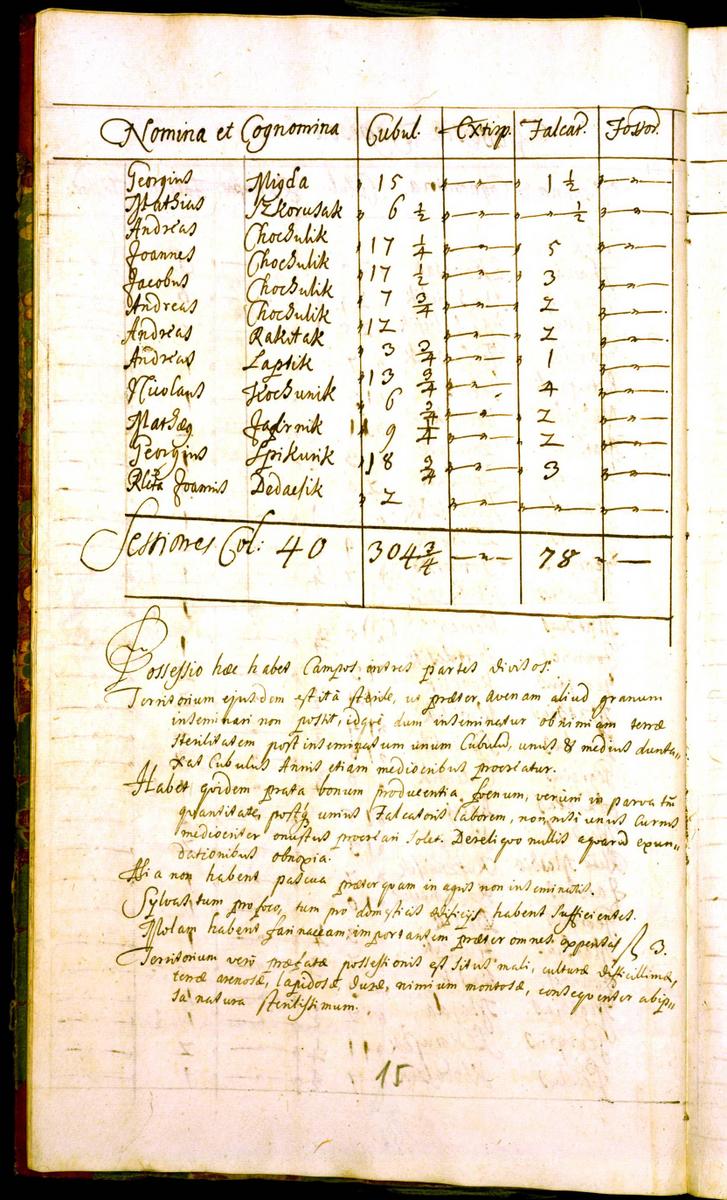 Nomina et Cognomina Cubul. Extirp. Falcat. Fossor.
Georgius Migda 15 — 1 1/2 —
Mathias Szkorusak 6 1/2 — 1/2 —
Andreas Chochulik 17 1/4 — 5 —
Joannes Chochulik 17 1/2 — 3 —
Jacobus Chochulik 7 3/4 — 2 —
Andreas Chochulik 12 — 2 —
Andreas Rakitak 3 3/4 — 1 —
Andreas Laptik 13 3/4 — 4 —
Nicolaus Kochunik 6 3/4 — 2 —
Mathæg 9 1/4 — 2 —
Georgius Spikurik 18 3/4 — 3 —
Rlta Joannis Dedaesik 2 — — —
Sessiones Col: 40 304 3/4 — 78 —
Possessio hæc habet Campos in tres partes divisos.
Territorium ejusdem est ità sterile, ut præter avenam aliud granum
inseminari non possit, idquè dum inseminatur ob nimiam terræ
sterilitatem post inseminatum unum Cubulum, unus & medius dunta„
xat Cubulus Annis etiam mediocribus procreatur.
Habet quidem prata bonum producentia foenum, verùm in parva tñ
quantitate, postq unius Falcatoris laborem, non nisi unus Currus
mediocriter onustus procreari solet. De reliquo nullis aquarũ exun„
dationibus obnoxia.
non habent pascua præterquam in agris non inseminatis.
Sylvas tum pro foco, tum pro domesticis ædificijs habent sufficientes.
Molam habent farinaceam, importantem præter omnes expensas f 3.
Territorium verò præfatæ possessionis est situs mali, culturæ difficillimæ,
terræ arenosæ, lapidosæ, duræ, nimium montosæ, consequenter ab ip„
sa natura sterilissimum.
15